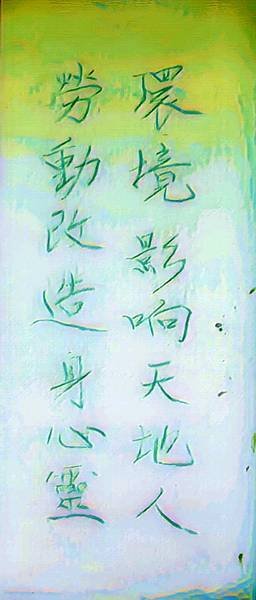 環境影响天地人
勞動改造身心靈